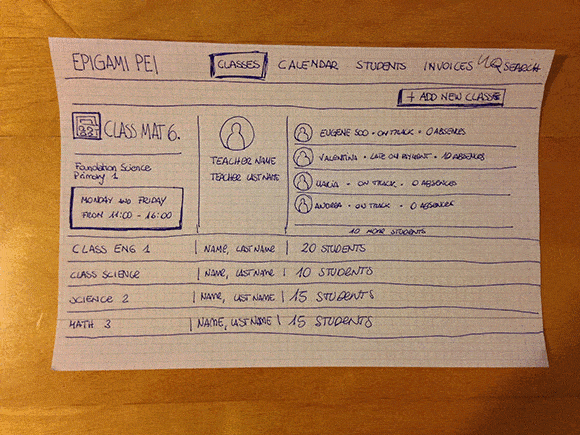 EPIGAMI PEI CLASSES CALENDAR STUDENTS INVOICES SEARCH
+ ADD NEW CLASSE
CLASS MAT 6.
Foundation Science
Primary 1
MONDAY AND FRIDAY
FROM 14:00 - 16:00
TEACHER NAME
TEACHER LAST NAME
EUGENE SOO • ON TRACK • 0 ABSENCES
VALENTINA • LATE ON PAYMENT • 10 ABSENCES
• ON TRACK • 0 ABSENCES
ANDREA • ON TRACK • 0 ABSENCES
10 MORE STUDENTS
CLASS ENG 1 | NAME, LAST NAME | 20 STUDENTS
CLASS SCIENCE | NAME, LAST NAME | 10 STUDENTS
SCIENCE 2 | NAME, LAST NAME | 15 STUDENTS
MATH 3 | NAME, LAST NAME | 15 STUDENTS